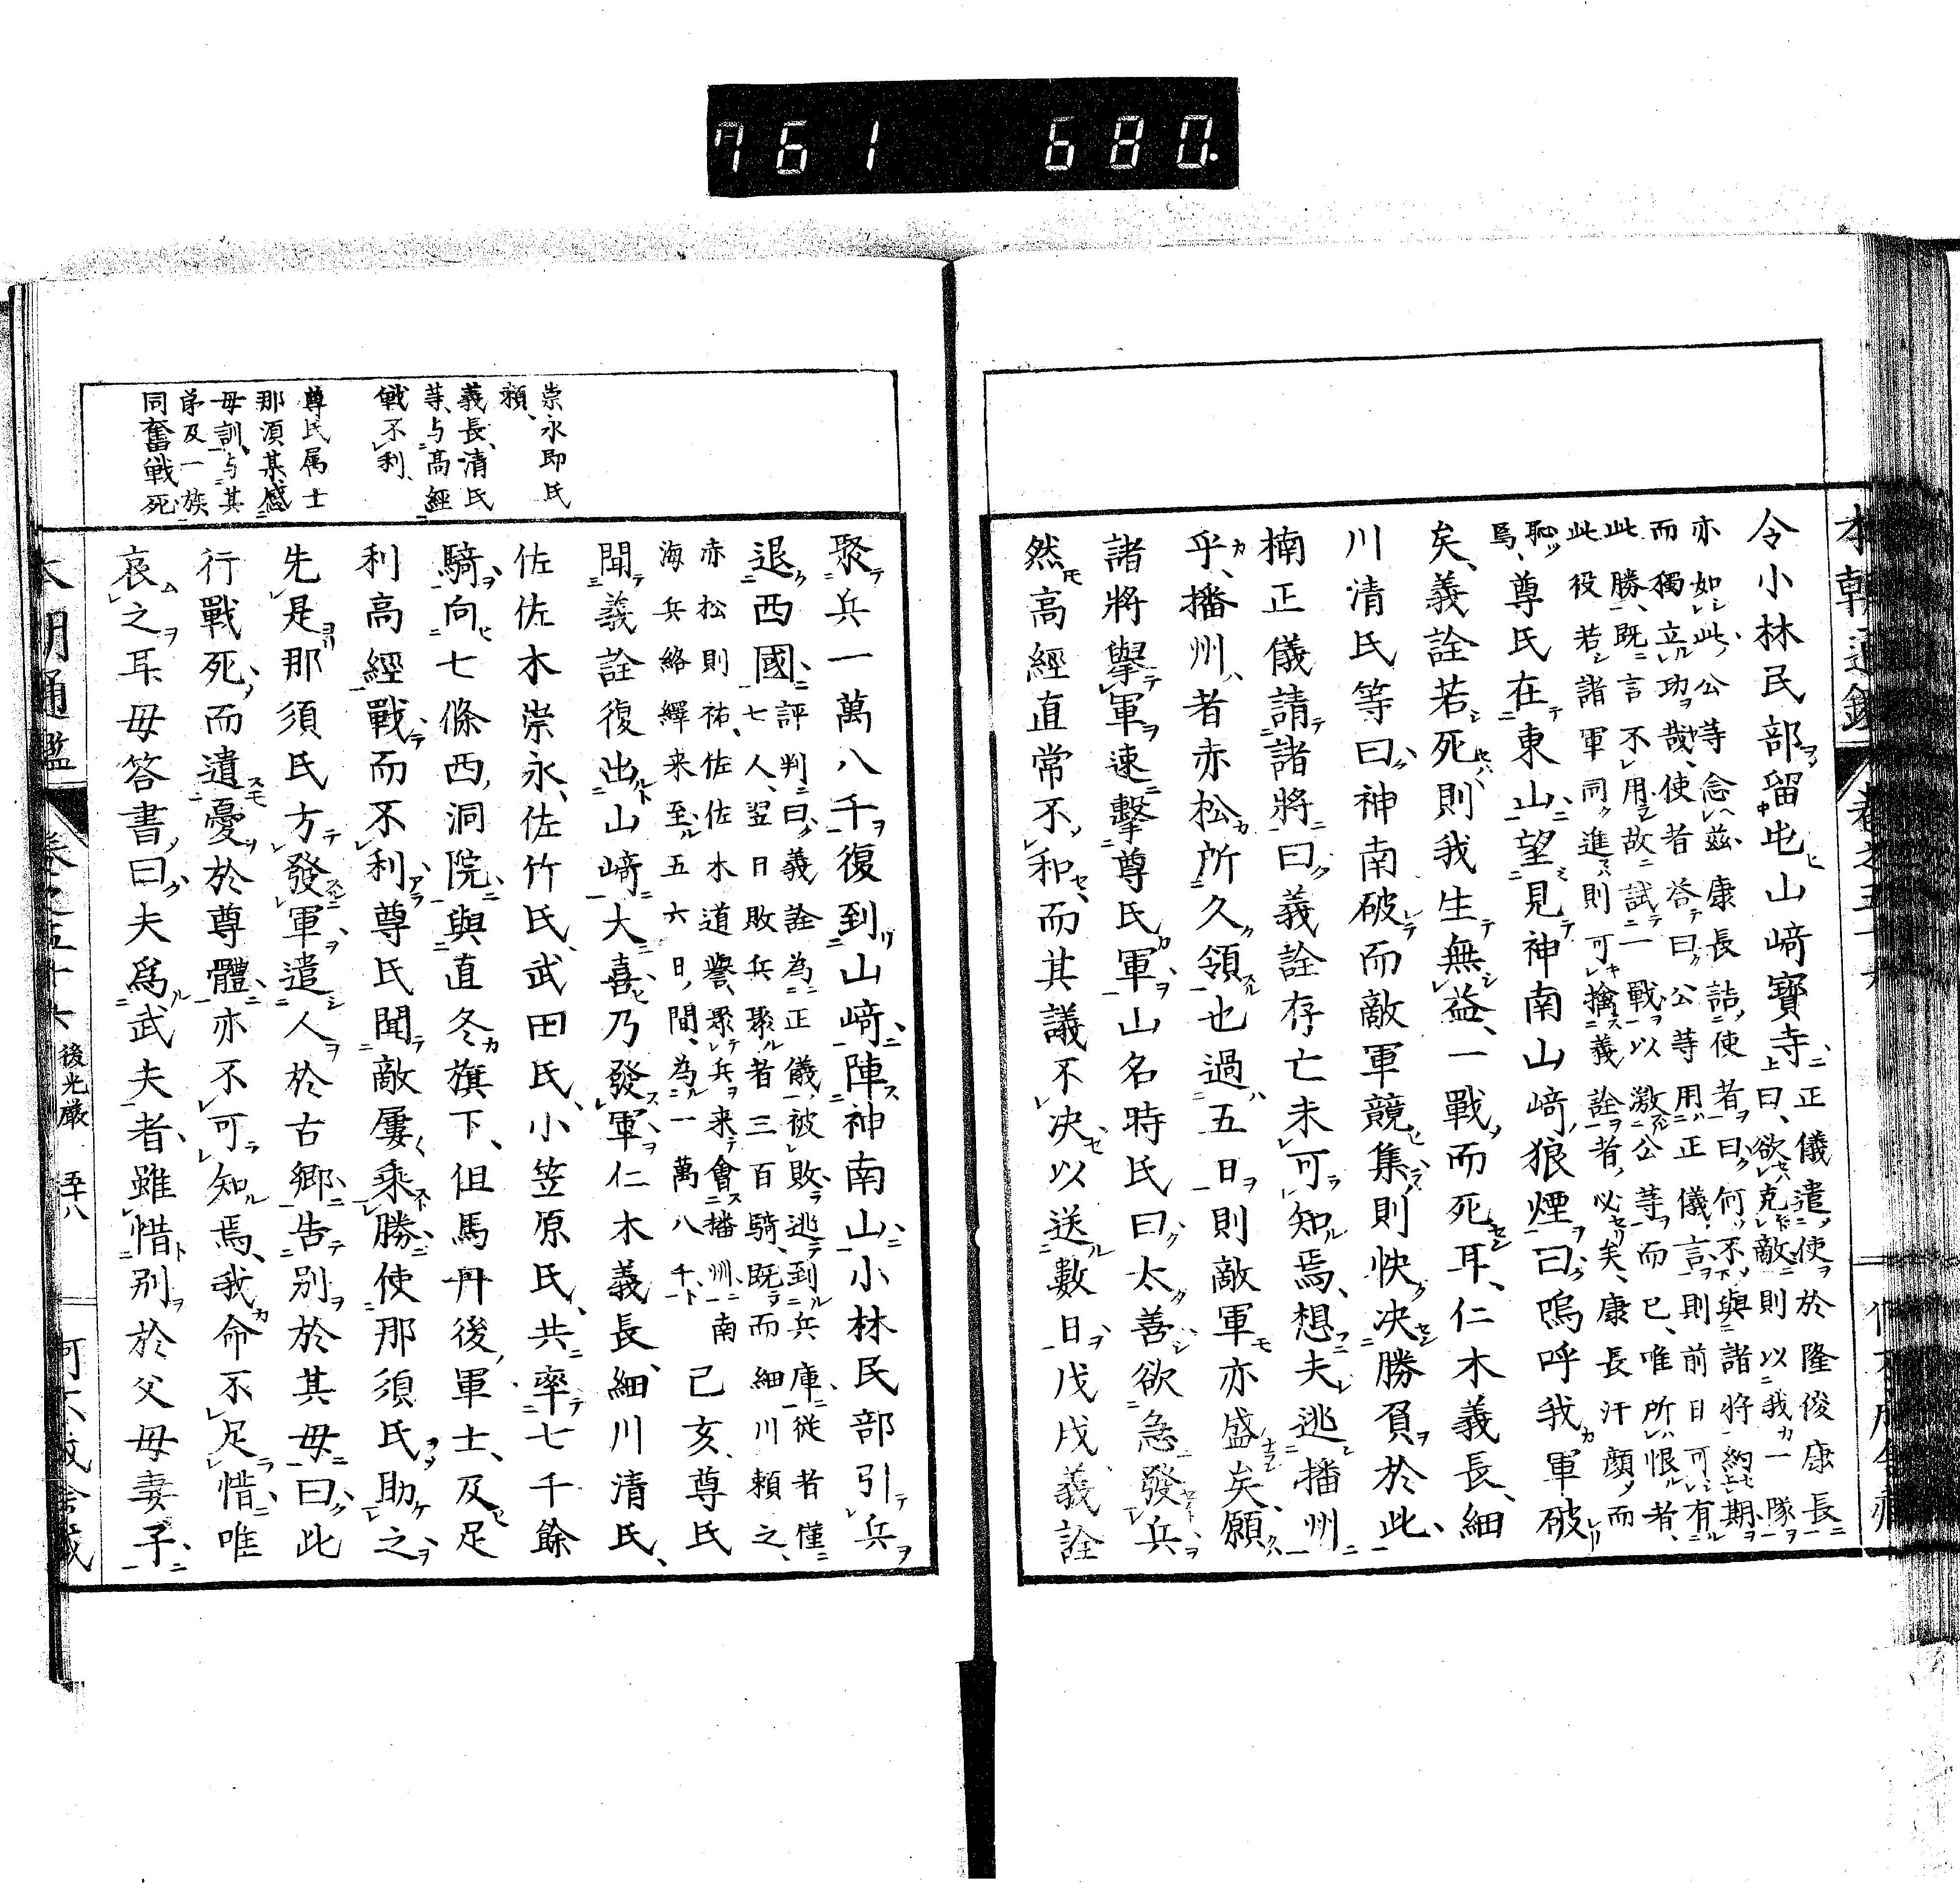 本朝通鑑 卷之五十六
令小林民部留屯山﨑寳寺正儀遣使於隆俊康長
曰欲克敵則以我一隊
亦如此公等念茲康長詰使者曰何不與諸將約期
而獨立功哉使者答曰公等用正儀言則前日可有
此勝既言不用故試一戰以激公等而已唯所恨者
此役若諸軍同進則可擒義詮者必矣康長汗顔而
恥
焉尊氏在東山望見神南山﨑狼煙曰嗚呼我軍破
矣義詮若死則我生無益一戰而死耳仁木義長細
川清氏等曰神南破而敵軍競集則快决勝負於此
楠正儀請諸將曰義詮存亡未可知焉想夫逃播州
乎播州者赤松所久領也過五日則敵軍亦盛矣願
諸將擧軍速擊尊氏軍山名時氏曰太善欲急發兵
然高經直常不和而其議不决以送數日戊戌義詮
崇永即氏
頼
義長清氏
等与高經
戦不利
尊氏属士
那須某感
母訓与其
弟及一族
同奮戦死
聚兵一萬八千復到山﨑陣神南山小林民部引兵
退西國評判曰義詮為正儀被敗逃到兵庫従者僅
七人翌日敗兵聚者三百騎既而細川頼之
赤松則祐佐佐木道譽聚兵来會播州南
海兵絡繹来至五六日間為一萬八千己亥尊氏
聞義詮復出山﨑大喜乃發軍仁木義長細川清氏
佐佐木崇永佐竹氏武田氏小笠原氏共率七千餘
騎向七條西洞院與直冬旗下但馬丹後軍士及足
利高經戰而不利尊氏聞敵屢乘勝使那須氏助之
先是那須氏方發軍遣人於古郷告别於其母曰此
行戰死而遺憂於尊體亦不可知焉我命不足惜唯
哀之耳母答書曰夫爲武夫者雖惜别於父母妻子
本朝通鑑 卷之五十六 後光厳 五十八